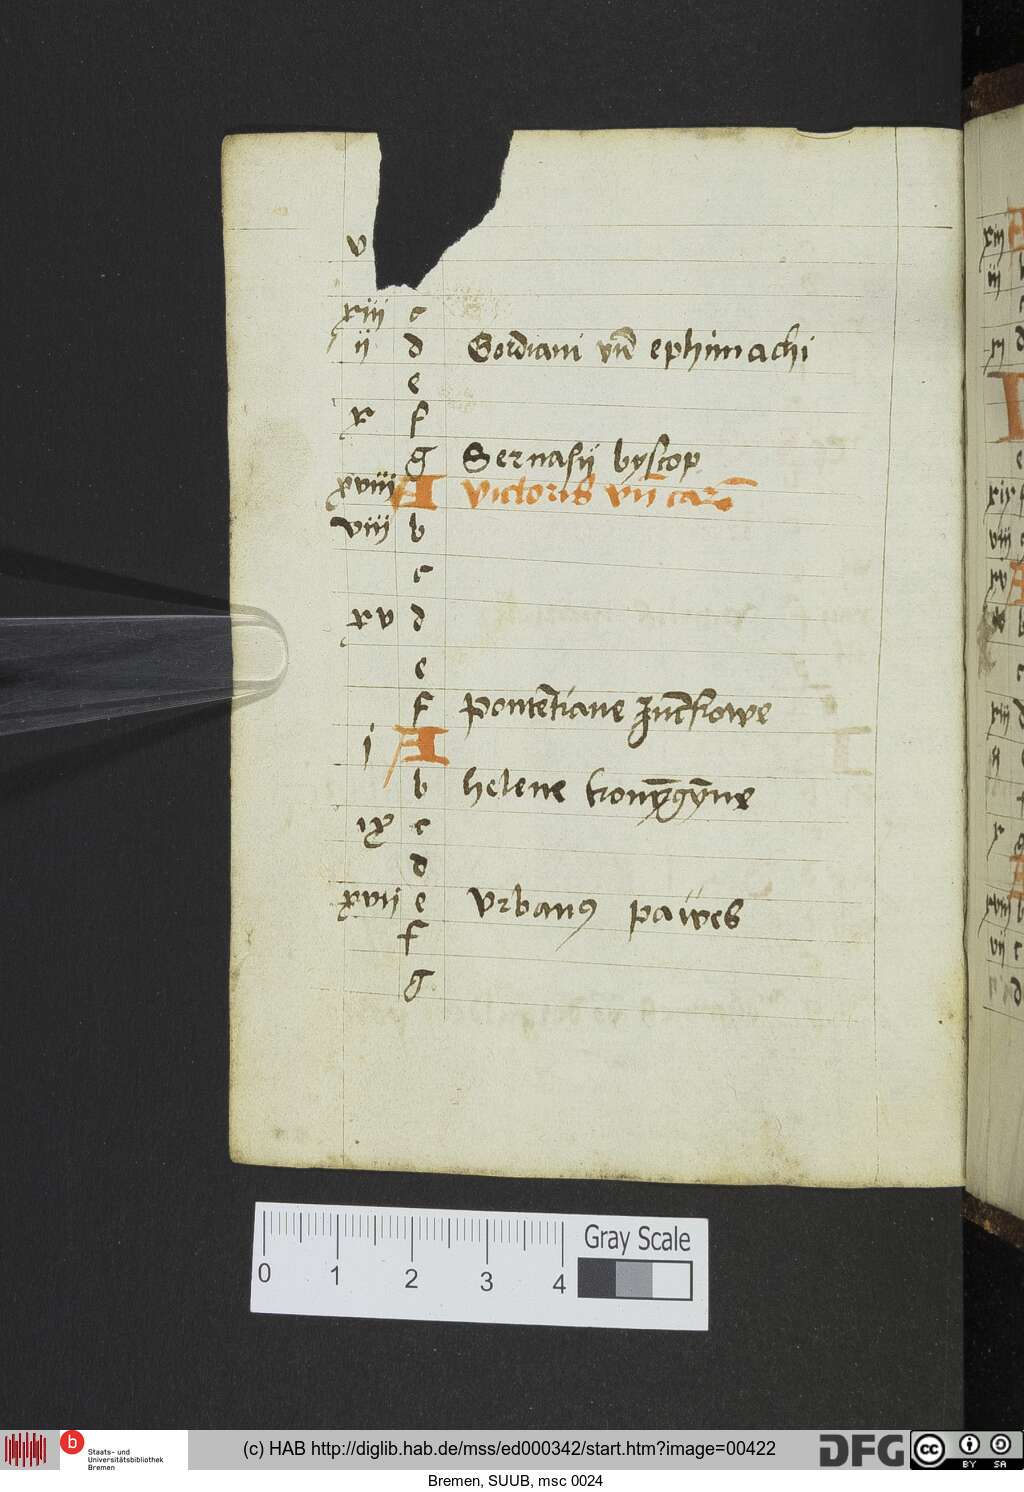 v
xiii c
ii d Gordiani vn̄ ephimachi
e
x f
g Seruasij byscop
xviii A Victoris vn̄ car̄
viii b
c
xv d
e
f pontētiane Juncfrowe
j A
b helene konȳgȳne
ix c
d
xvii e Vrbanꝰ pawes
f
g
0 1 2 3 4
Gray Scale
b
Staats- und
Universitätsbibliothek
Bremen
(c) HAB http://diglib.hab.de/mss/ed000342/start.htm?image=00422
DFG
cc
BY SA
Bremen, SUUB, msc 0024